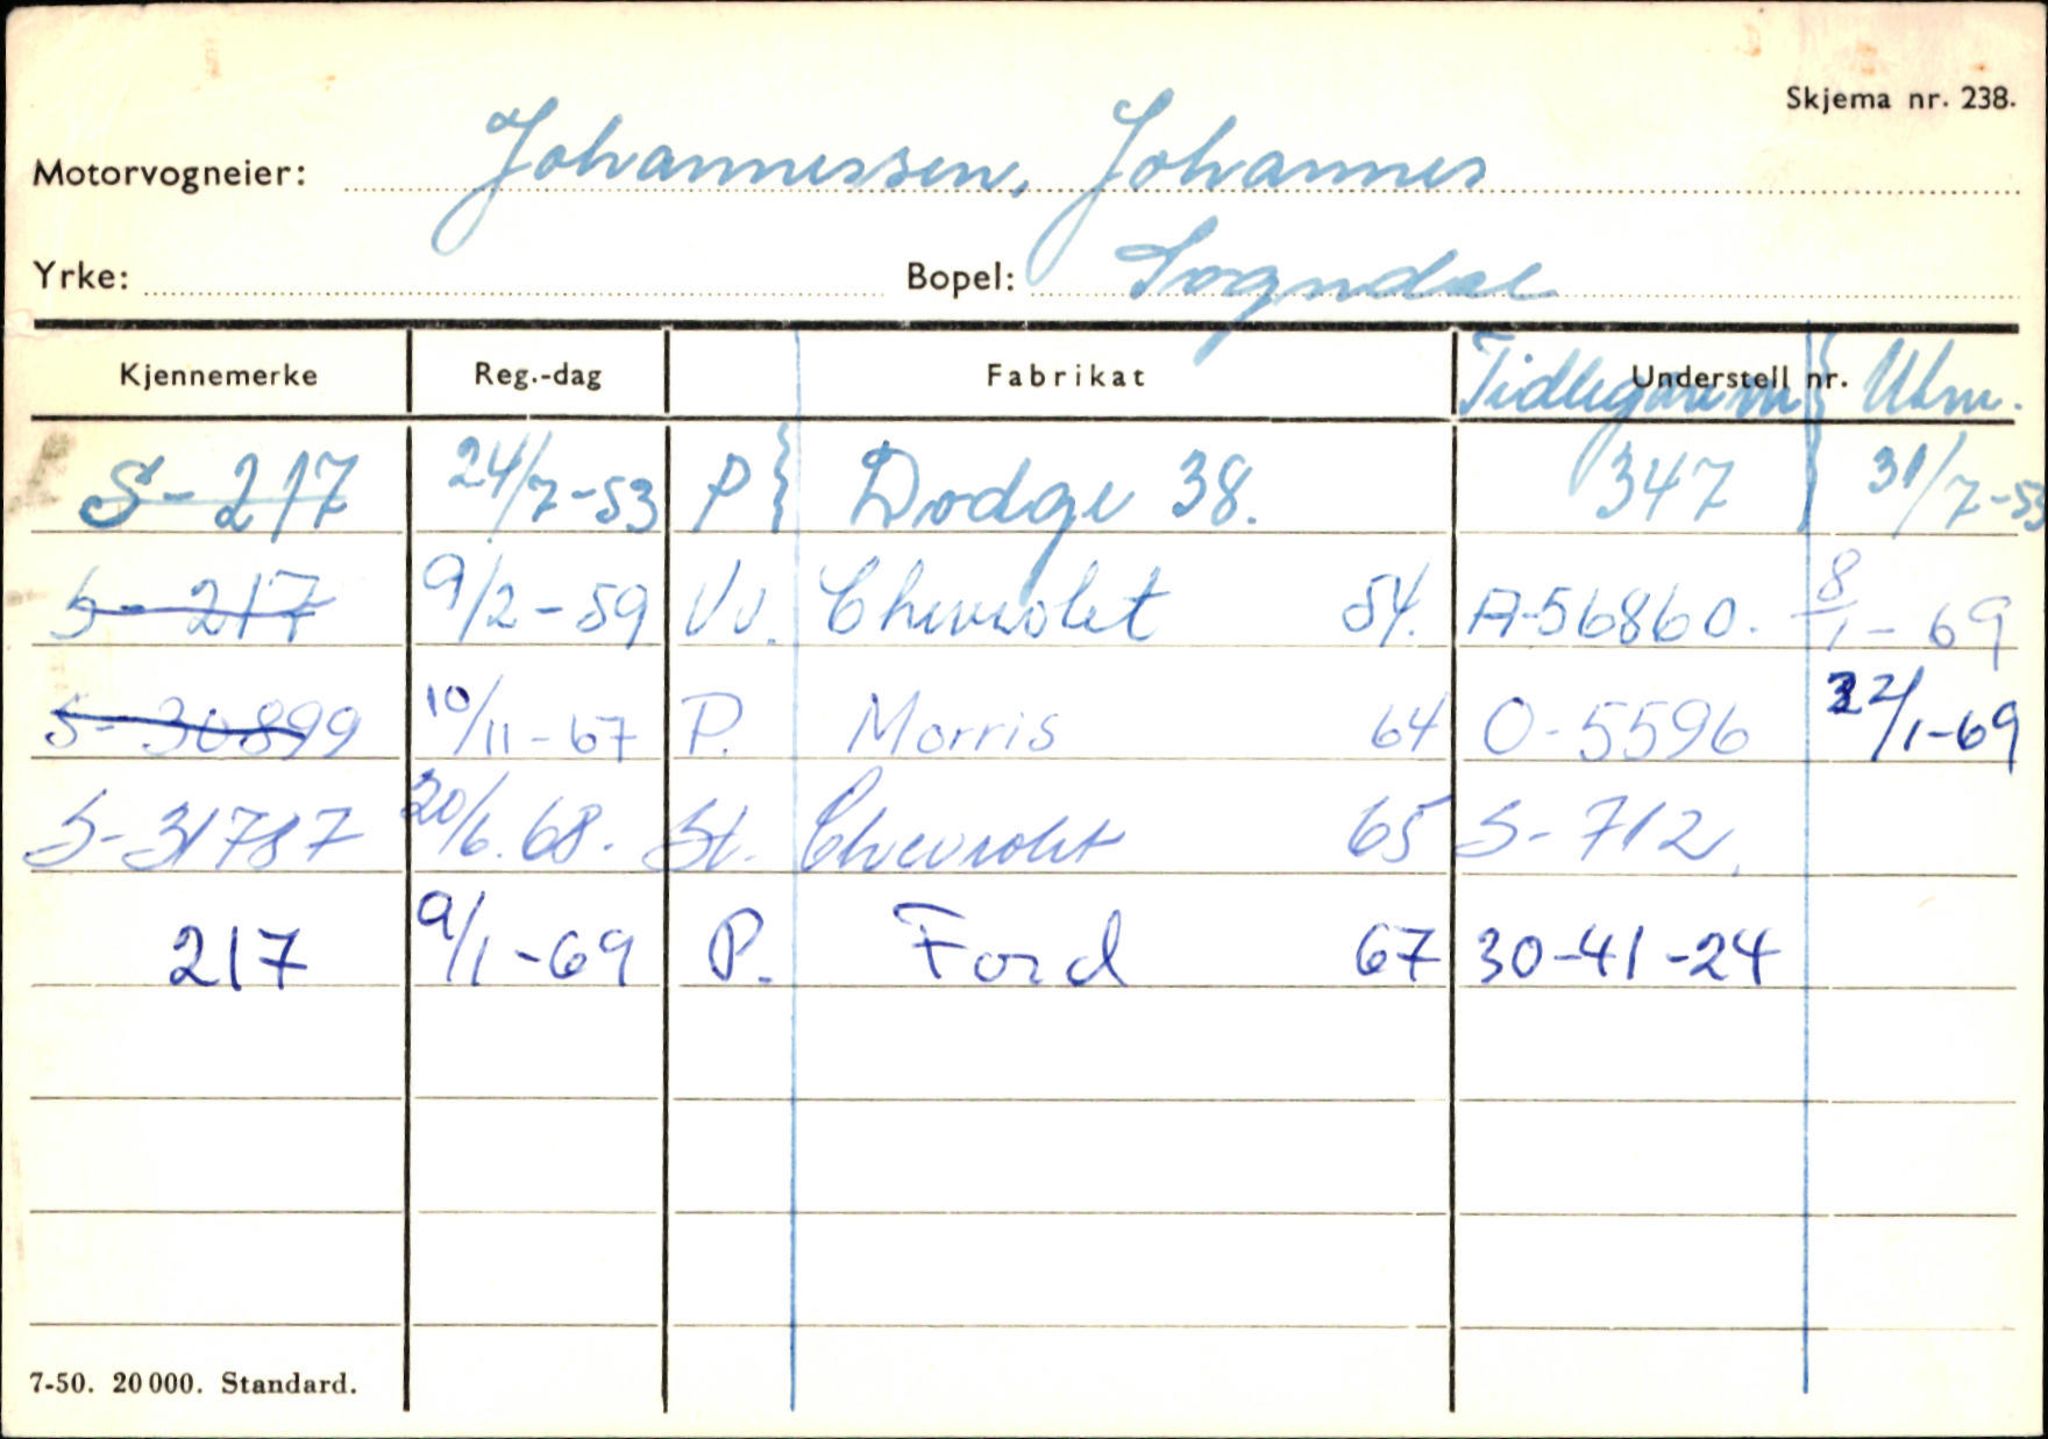 Skjema nr. 238.
Motorvogneier: Johannessen, Johannes
Yrke: Bopel: Sogndal
Kjennemerke Reg.-dag Fabrikat Understell nr. Utm.
S-217 24/7-53 P} Dodge 38. 347 31/7-53
S-217 9/2-59 Vv. Chevrolet 54. A-56860. 8/1-69
S-30899 10/11-67 P. Morris 64 O-5596 22/1-69
S-31787 20/6.68. St. Chevrolet 65 S-712.
217 9/1-69 P. Ford 67 30-41-24
7-50. 20 000. Standard.